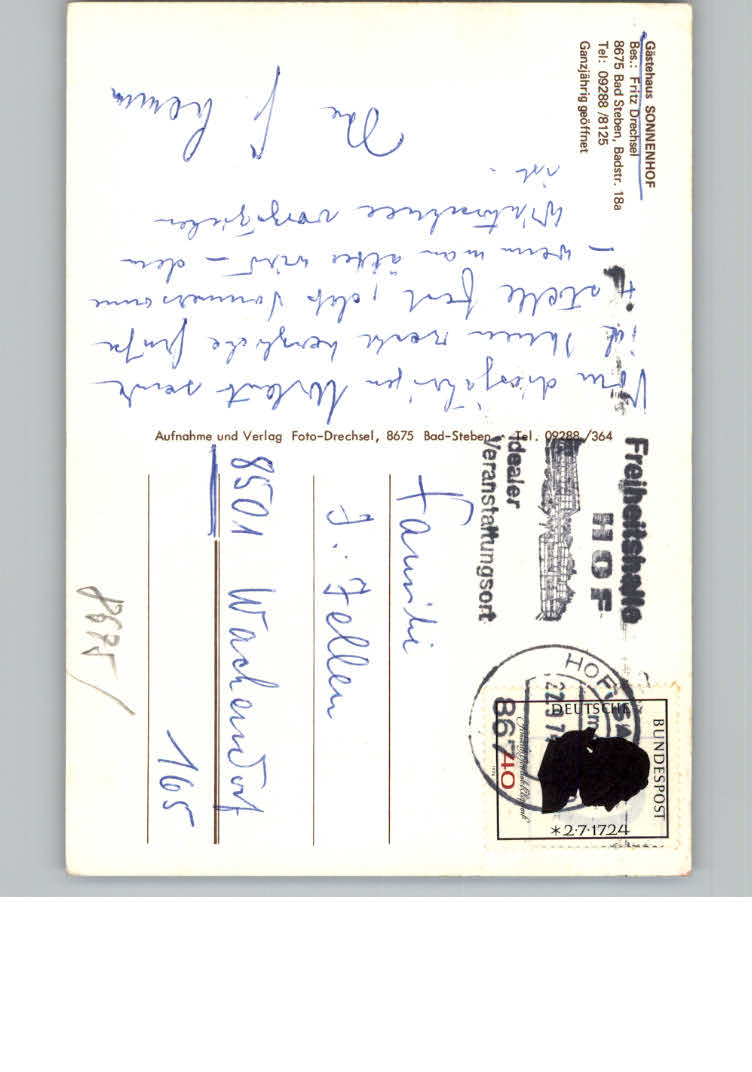 Gästehaus SONNENHOF
Bes.: Fritz Drechsel
8675 Bad Steben, Badstr. 18a
Tel: 09288 /8125
Ganzjährig geöffnet
Vom diesjährigen Urlaub sende
ich Ihnen recht herzliche Grüße
+ stelle fest, daß Sommersonne
– wenn man älter wird – dem
Winterschnee vorzuziehen
ist.
Ihr
Aufnahme und Verlag Foto-Drechsel, 8675 Bad-Steben - Tel. 09288/364
Freiheitshalle
HOF
Idealer
Veranstaltungsort
HOF, SA
22.9.7
867
DEUTSCHE
BUNDESPOST
40
*2·7·1724
Familie
J. Zellen
8501 Wachendorf
165
8675